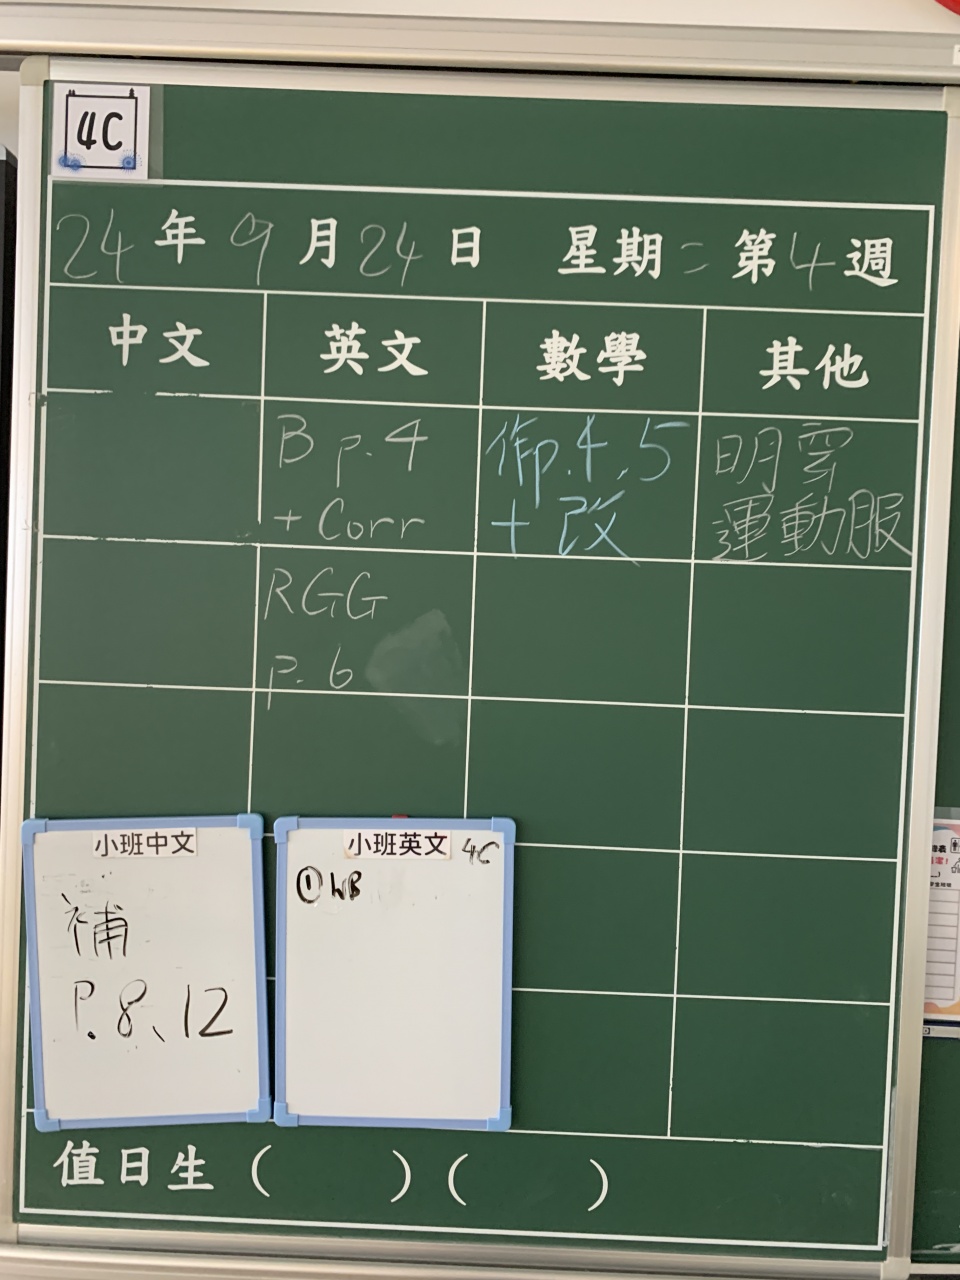 4C
24年9月24日 星期二 第4週
中文 英文 數學 其他
B p.4
+ Corr
衛p.4,5
+改
明穿
運動服
RGG
p.6
小班中文
補
P.8、12
小班英文 4C
① WB
值日生 ( ) ( )